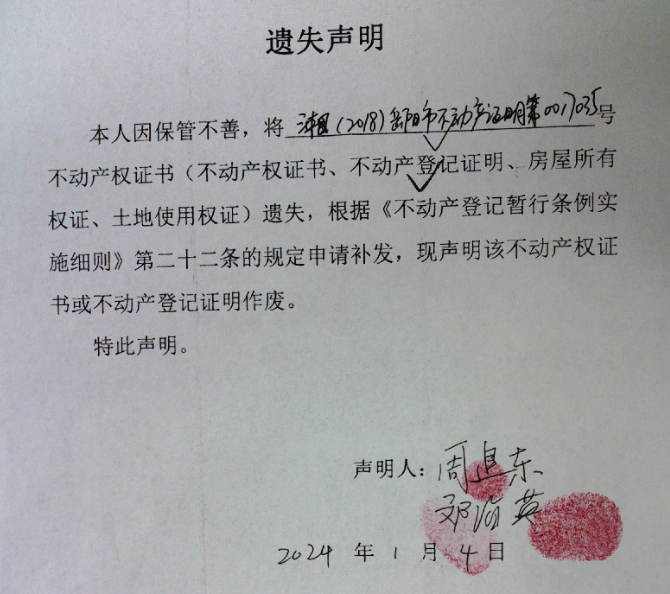 遗失声明
本人因保管不善，将 湘(2018)岳阳市不动产证明第0017035号
不动产权证书（不动产权证书、不动产登记证明、房屋所有
权证、土地使用权证）遗失，根据《不动产登记暂行条例实
施细则》第二十二条的规定申请补发，现声明该不动产权证
书或不动产登记证明作废。
特此声明。
声明人：周追东
邓 英
2024 年 1 月 4 日